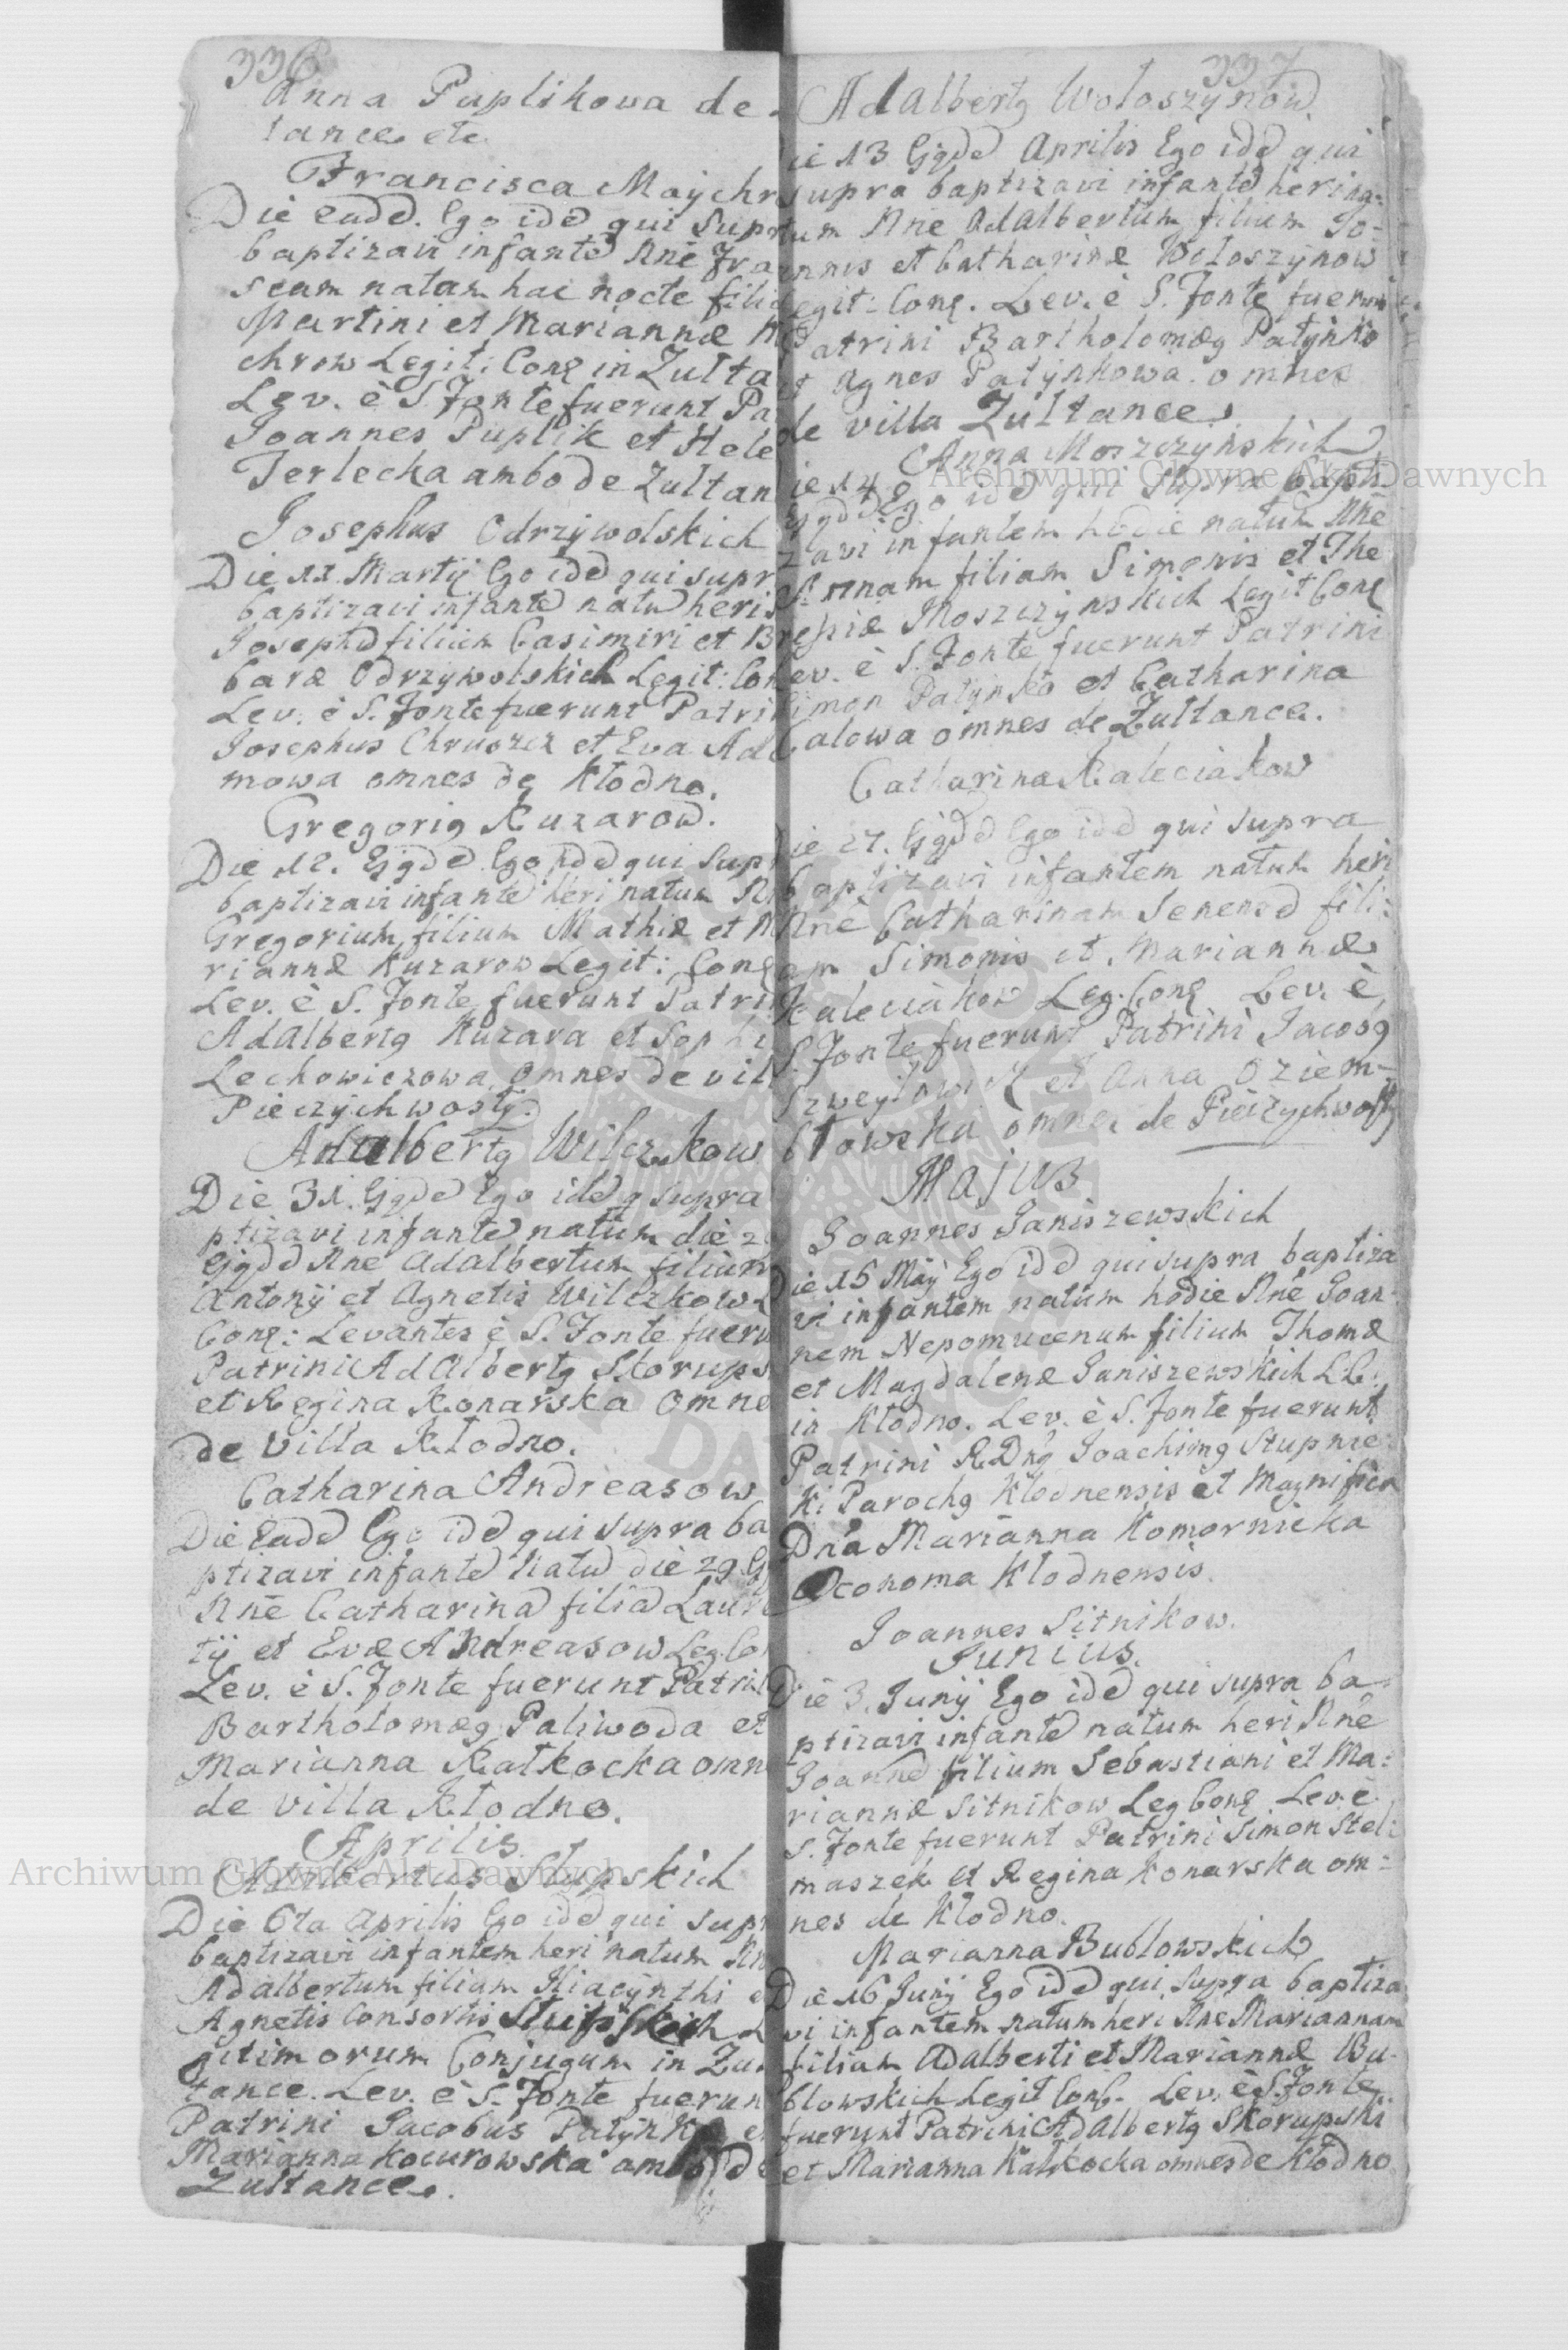 336
Anna Puplikowa de
tance etc
Francisca Maÿchr
Die eadē. Ego idē qui Supr
baptizavi infantē Nnē Fra
scam natam hac nocte filia
Martini et Mariannæ M
chrow Legit: Conę in Zulta
Lev. è S. Fonte fuerunt Pa
Joannes Puplik et Hele
Terlecka ambo de Zultan
Josephus Odrzÿwolskich
Die 11. Martÿ Ego idē qui supr
baptizavi infantē natū heri
Josephū filium Casimiri et B
baræ Odrzywolskich Legit: Con
Lev. è S. Fonte fuerunt Patri
Josephus Chruszcz et Eva Ad
mowa omnes de Kłodno.
Gregorig Kuzarow.
Die 12. Ejgdē Ego idē qui Supr
baptizavi infantē heri natum N
Gregorium filium Mathiæ et M
riannæ Kuzarow Legit: Conę
Lev. è S. Fonte fuerunt Patri
Adalbertg Kuzara et Sophi
Lechowiczowa omnes de vil
Pieczÿchwostÿ.
Adalbertg Wilczkow
Die 31. Ejgdē Ego idē q supra
ptizavi infantē natum die 2
Ejgdē Nnē Adalbertum filium
Antonÿ et Agnetis Wilczkow L
Conę: Levantes è S. Fonte fueru
Patrini Adalbertg Skorups
et Regina Konarska omne
de villa Kłodno.
Catharina Andreasow
Die Eadē Ego idē qui supra ba
ptizavi infantē natū die 29 E
Nnē Catharinā filiā Laure
tÿ et Evæ Andreasow Leg. Co
Lev. è S. Fonte fuerunt Patri
Bartholomæg Paliwoda et
Marianna Kałkocka omn
de villa Kłodno.
Aprilis.
Adalbertus Słupskich
Die 6ta Aprilis Ego idē qui Supr
baptizavi infantem heri natum Nn
Adalbertum filium Hiacÿnthi e
Agnetis Consortis Słupskich L
gitimorum Conjugum in Zul
tance. Lev. è S. Fonte fuerun
Patrini Jacobus Patÿnko et
Marianna Kocurowska ambo de
Zultance.
337
Adalbertg Wołoszÿnow
ie 13 Ejgdē Aprilis Ego idē qui
supra baptizavi infantē heri na=
tum Nne Adalbertum filium Jo=
annis et Catharinæ Wołoszÿnow
Legit: Conę. Lev. è S. Fonte fuerunt
Patrini Bartholomæg Patÿnko
et Agnes Patÿnkowa omnes
de villa Zultance.
Anna Moszczÿńskich
ie 14 Ejgdē Ego idē qui Supra bapti
zavi infantem hodie natum Nnē
Annam filiam Simonis et The
resiæ Moszczÿnskich Legit Conę
Lev. è S. Fonte fuerunt Patrini
Simon Patÿnko et Catharina
Całowa omnes de Zultance.
Catharina Kaleciakow
ie 27. Ejgdē Ego idē qui supra
baptizavi infantem natum heri
Nnē Catharinam Senensē fili=
am Simonis et Mariannæ
Kaleciakow Leg. Conę Lev. è
S. Fonte fuerunt Patrini Jacobg
et Anna Oziem=
błowska omnes de Pieczychwosty
Majus
Joannes Janiszewskich
Die 15 Maÿ Ego idē qui supra baptiza
vi infantem natum hodie Nnē Joan=
nem Nepomucenum filium Thomæ
et Magdalenæ Janiszewskich LC.
in Kłodno. Lev. è S. Fonte fuerunt
Patrini R.Dng Joachimg Stupnic
ki Parochg Kłodnensis et Magnifica
Dna Marianna Komornicka
Oeconoma Kłodnensis.
Joannes Sitnikow.
Junius.
Die 3. Junÿ Ego idē qui supra ba=
ptizavi infantē natum heri Nnē
Joannē filium Sebastiani et Ma=
riannæ Sitnikow Leg Conę Lev. è
S. Fonte fuerunt Patrini Simon Stel=
maszek et Regina Konarska om=
nes de Kłodno.
Marianna Bubłowskich
Die 16 Junÿ Ego idē qui supra baptiza
vi infantem natum heri Nne Mariannam
filiam Adalberti et Mariannæ Bu=
błowskich Legit Conę. Lev. è S. Fonte
fuerunt Patrini Adalbertg Skorupski
et Marianna Kałkocka omnes de Kłodno
Archiwum Główne Akt Dawnych
Archiwum Główne Akt Dawnych